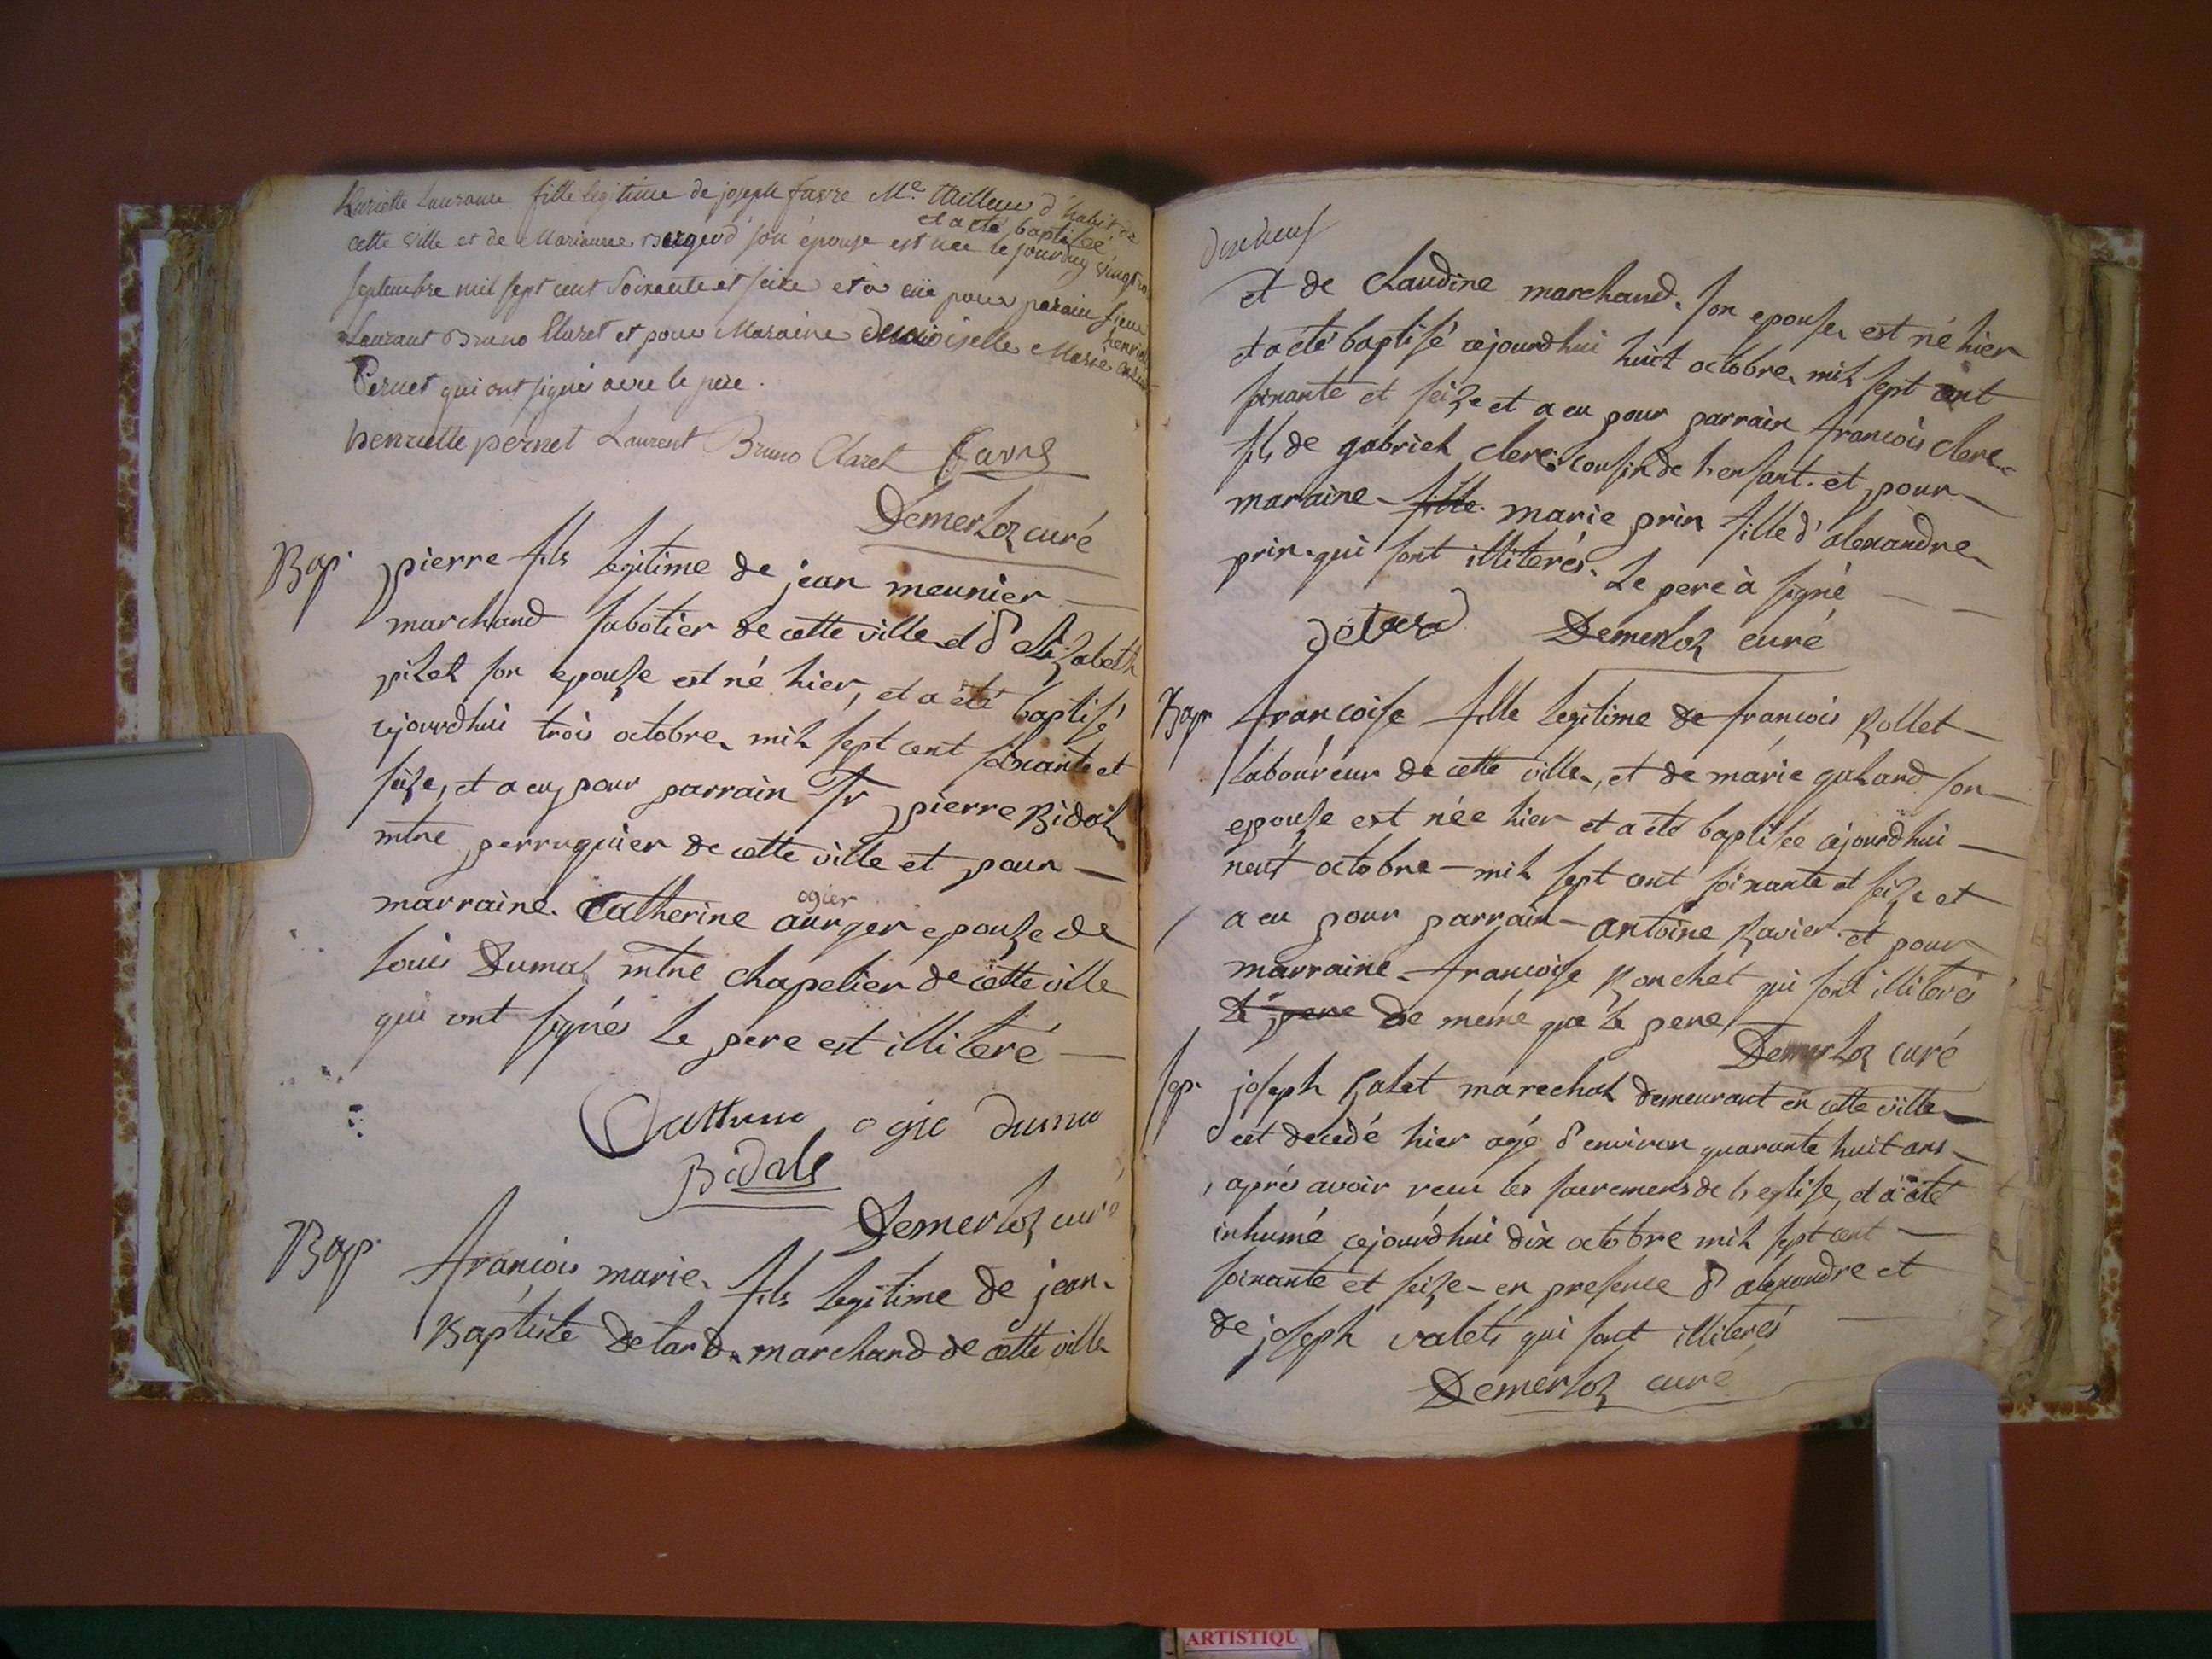 henriette Lauranne fille legitime de joseph favre Me. tailleur d'habit de
et a été baptisée
cette ville et de Marianne son épouse est née le jourduy vingt
septembre mil sept cent Soixante et seize et a eüe pour parain sieur
Laurant Bruno Claret et pour Maraine demoiselle Marie
henriette
Pernet qui ont signés avec le père.
henriette pernet Laurent Bruno Claret favre
Demerloz curé
Bap. pierre fils legitime de jean meunier
marchand sabotier de cette ville et d'elizabeth
pilet son epouse est né hier, et a été baptisé
cejourdhui trois octobre mil sept cent soixante et
seize, et a eu pour parrain Sr pierre Bidal
mtre perruquier de cette ville et pour
ogier
marraine Catherine aurger epouse de
louis Dumas mtre chapelier de cette ville
qui ont signés le pere est illiteré
Catterine ogie duma
Bidale
Demerloz curé
Bap. françois marie fils legitime de jean
Baptiste delard marchand de cette ville
Dixneuf
et de claudine marchand son epouse est né hier
et a été baptisé cejourdhui huit octobre mil sept cent
soixante et seize et a eu pour parrain françois clerc
fils de gabriel clerc cousin de l'enfant et pour
maraine fille marie prin fille d'alexandre
prin qui sont illiterés. Le pere à signé
delard Demerloz curé
Bap françoise fille legitime de françois Rollet
laboureur de cette ville, et de marie galand son
epouse est née hier et a été baptisée cejourdhui
neuf octobre mil sept cent soixante et seize et
a eu pour parrain antoine Ravier et pour
marraine françoise Ronchet qui sont illiterés
le pere de même que le pere
Demerloz curé
sep. joseph Galet marechal demeurant en cette ville
est decedé hier agé d'environ quarante huit ans
après avoir reçu les sacremens de l'eglise, et a été
inhumé cejourdhui dix octobre mil sept cent
soixante et seize en presence d'alexandre et
de joseph valets qui sont illiterés
Demerloz curé
ARTISTIQU